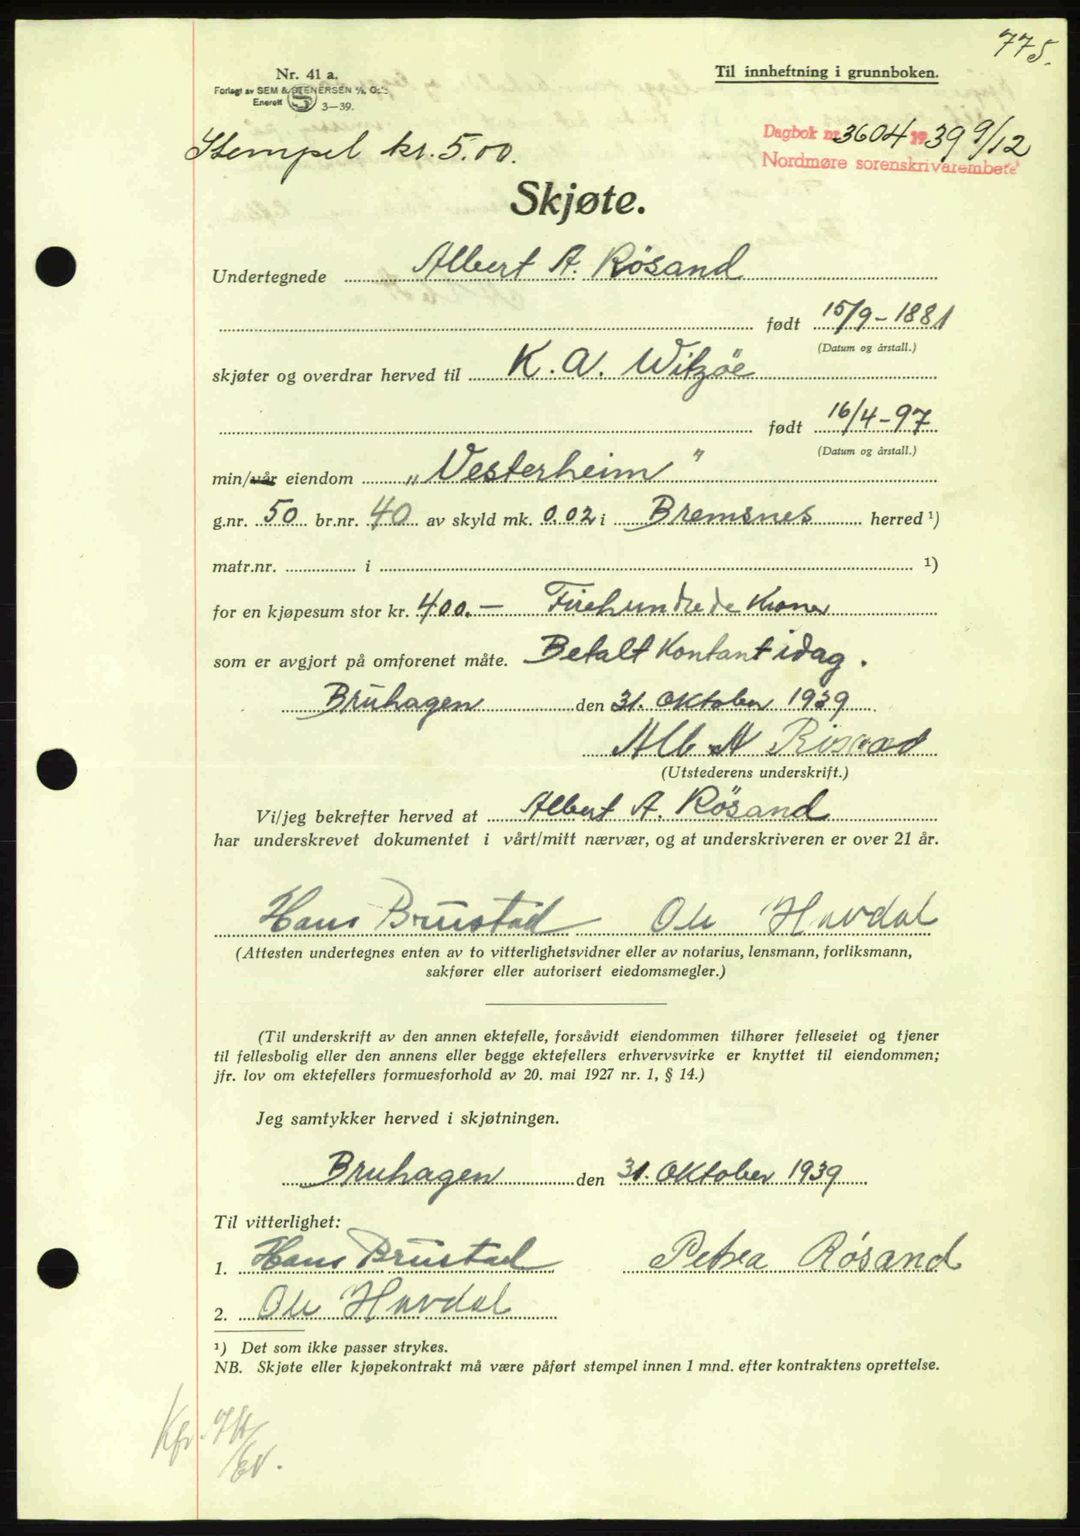 775.
Nr. 41 a.
Til innheftning i grunnboken.
Forlagt av SEM & STENERSEN A/S, Oslo
Enerett S 3-39.
Stempel kr. 5.00.
Dagbok nr. 3604 1939 9/12
Nordmøre sorenskrivarembete
Skjøte.
Undertegnede Albert A. Røsand
født 15/9-1881
(Datum og årstall.)
skjøter og overdrar herved til K. A. Witzøe
født 16/4-97
(Datum og årstall.)
min/vår eiendom „Vesterheim"
g.nr. 50 br.nr. 40 av skyld mk. 0.02 i Bremsnes herred ¹)
matr.nr. i ¹)
for en kjøpesum stor kr. 400.— Firehundrede Kroner
som er avgjort på omforenet måte. Betalt Kontant idag.
Bruhagen den 31. Oktober 1939
Alb A Røsand
(Utstederens underskrift.)
Vi/jeg bekrefter herved at Albert A. Røsand
har underskrevet dokumentet i vårt/mitt nærvær, og at underskriveren er over 21 år.
Hans Brustad Ole Havdal
(Attesten undertegnes enten av to vitterlighetsvidner eller av notarius, lensmann, forliksmann,
sakfører eller autorisert eiedomsmegler.)
(Til underskrift av den annen ektefelle, forsåvidt eiendommen tilhører felleseiet og tjener
til fellesbolig eller den annens eller begge ektefellers erhvervsvirke er knyttet til eiendommen;
jfr. lov om ektefellers formuesforhold av 20. mai 1927 nr. 1, § 14.)
Jeg samtykker herved i skjøtningen.
Bruhagen den 31. Oktober 1939
Til vitterlighet:
1. Hans Brustad Petra Røsand
2. Ole Havdal
¹) Det som ikke passer strykes.
NB. Skjøte eller kjøpekontrakt må være påført stempel innen 1 mnd. efter kontraktens oprettelse.
Kfr.